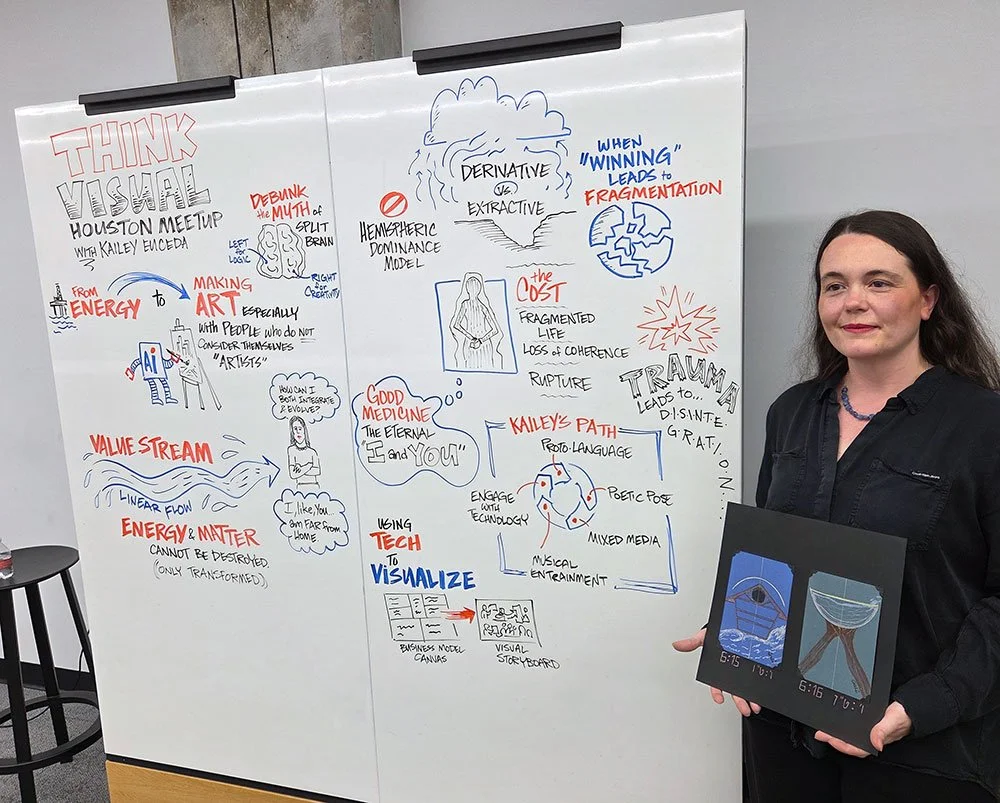 THINK
VISUAL
HOUSTON MEETUP
WITH KAILEY EUCEDA
DEBUNK
the MYTH of
SPLIT
BRAIN
LEFT for
LOGIC
RIGHT for
CREATIVITY
FROM
ENERGY to
MAKING
ART ESPECIALLY
WITH PEOPLE WHO DO NOT
CONSIDER THEMSELVES
"ARTISTS"
AI
HOW CAN I
BOTH INTEGRATE
& EVOLVE?
VALUE STREAM
LINEAR FLOW
I, like, YOU...
am FAR FROM
HOME.
ENERGY & MATTER
CANNOT BE DESTROYED.
(ONLY TRANSFORMED)
DERIVATIVE
VS
EXTRACTIVE
HEMISPHERIC
DOMINANCE
MODEL
WHEN
"WINNING"
LEADS to
FRAGMENTATION
the
COST
FRAGMENTED
LIFE
LOSS of COHERENCE
RUPTURE
TRAUMA
LEADS to...
D.I.S.I.N.T.E.
G.R.A.T.I.O.N.
GOOD
MEDICINE
THE ETERNAL
"I and YOU"
KAILEY'S PATH
PROTO-LANGUAGE
ENGAGE
WITH
TECHNOLOGY
POETIC POSE
MIXED MEDIA
MUSICAL
ENTRAINMENT
USING
TECH
to
VISUALIZE
BUSINESS MODEL
CANVAS
VISUAL
STORYBOARD
6:15
6:16